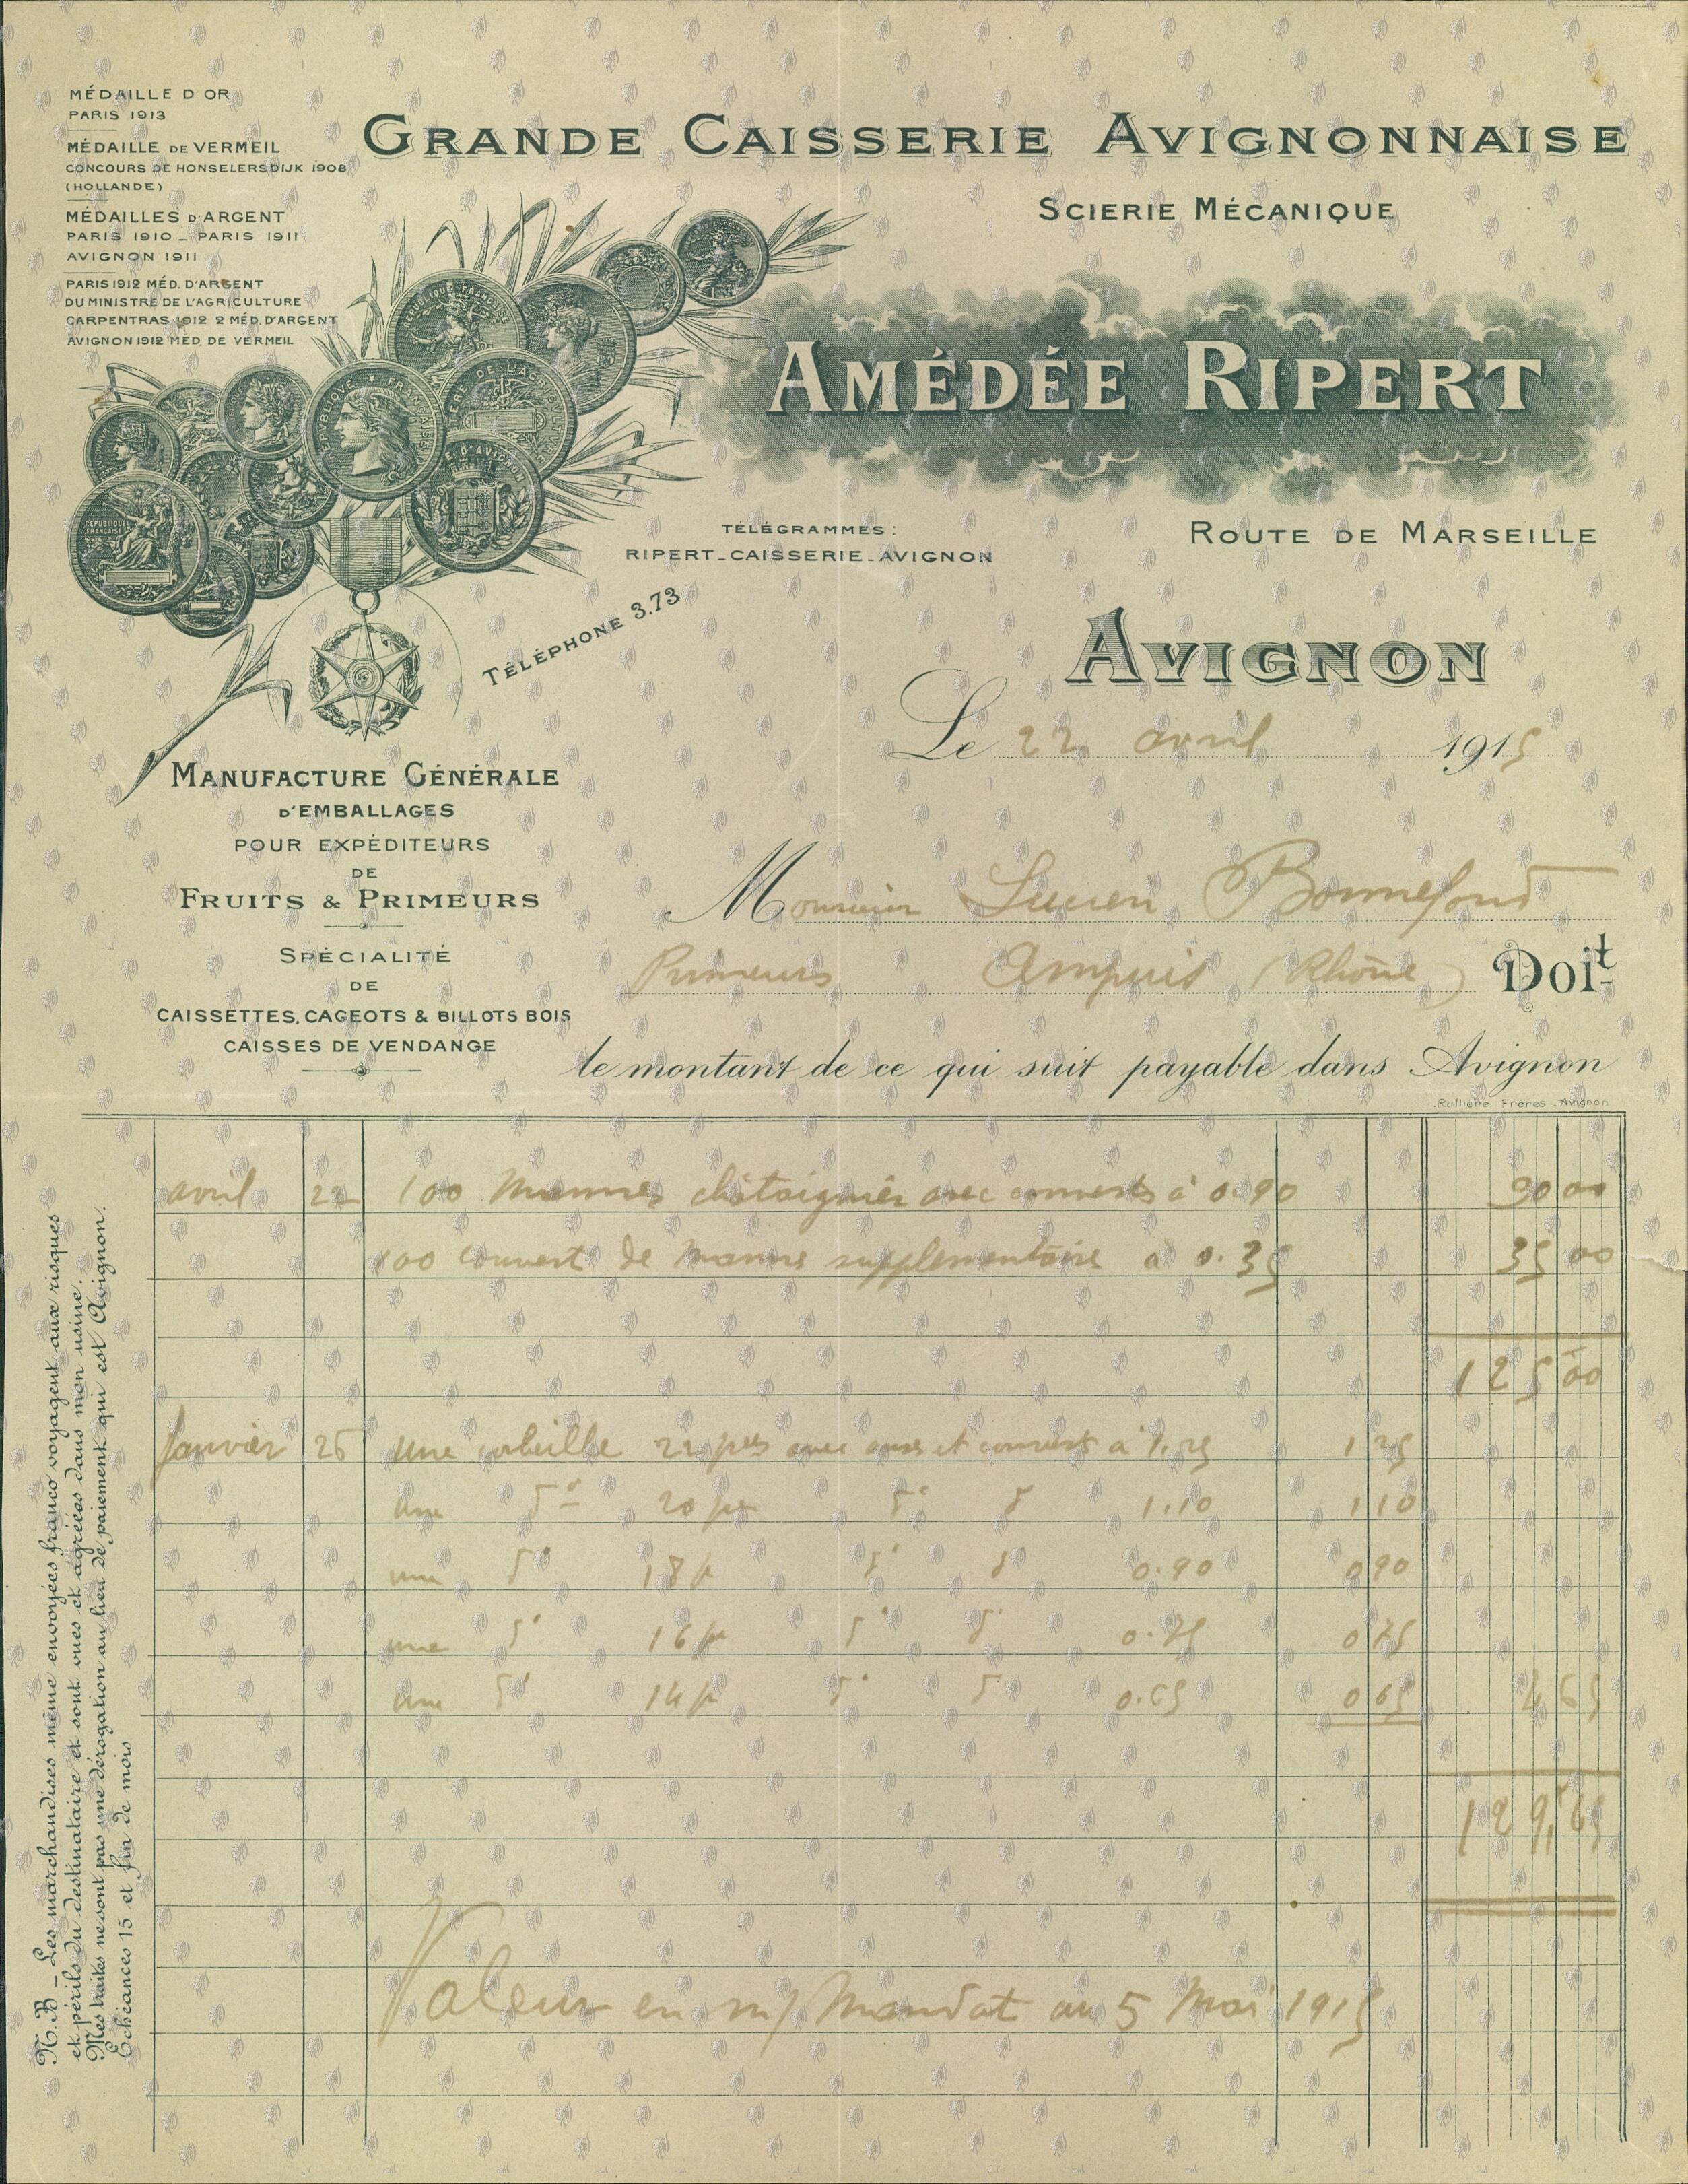 MÉDAILLE D'OR
PARIS 1913
MÉDAILLE DE VERMEIL
CONCOURS DE HONSELERSDIJK 1908
(HOLLANDE)
MÉDAILLES D'ARGENT
PARIS 1910 _ PARIS 1911
AVIGNON 1911
PARIS 1912 MÉD. D'ARGENT
DU MINISTRE DE L'AGRICULTURE
CARPENTRAS 1912 2 MÉD. D'ARGENT
AVIGNON 1912 MÉD. DE VERMEIL
GRANDE CAISSERIE AVIGNONNAISE
SCIERIE MÉCANIQUE
AMÉDÉE RIPERT
TÉLÉGRAMMES :
RIPERT_CAISSERIE_AVIGNON
ROUTE DE MARSEILLE
TÉLÉPHONE 3.73
AVIGNON
Le 22 avril 1915
MANUFACTURE GÉNÉRALE
D'EMBALLAGES
POUR EXPÉDITEURS
DE
FRUITS & PRIMEURS
SPÉCIALITÉ
DE
CAISSETTES, CAGEOTS & BILLOTS BOIS
CAISSES DE VENDANGE
Monsieur Lucien Bonnefond
Primeurs Ampuis (Rhône) Doit
le montant de ce qui suit payable dans Avignon
Rullière Frères . Avignon
avril 22 100 Mannes châtaignier avec couverts à 0.90 90 00
100 couvert de manne supplementaire à 0.35 35 00
125 00
Janvier 26 une corbeille 22 pes avec anses et couvert à 1.25 1 25
une d° 20 p d° d° 1.10 1 10
une d° 18 p d° d° 0.90 0 90
une d° 16 p d° d° 0.75 0 75
une d° 14 p d° d° 0.65 0 65 4 65
129,65
Valeur en m/ mandat au 5 Mai 1915
N.B _ Les marchandises même envoyées franco voyagent aux risques
et périls du destinataire et sont vues et agréées dans mon usine.
Mes traites ne sont pas une dérogation au lieu de paiement qui est Avignon.
Échéances 15 et fin de mois
RÉPUBLIQUE FRANÇAISE
RÉPUBLIQUE FRANÇAISE
RÉPUBLIQUE FRANÇAISE